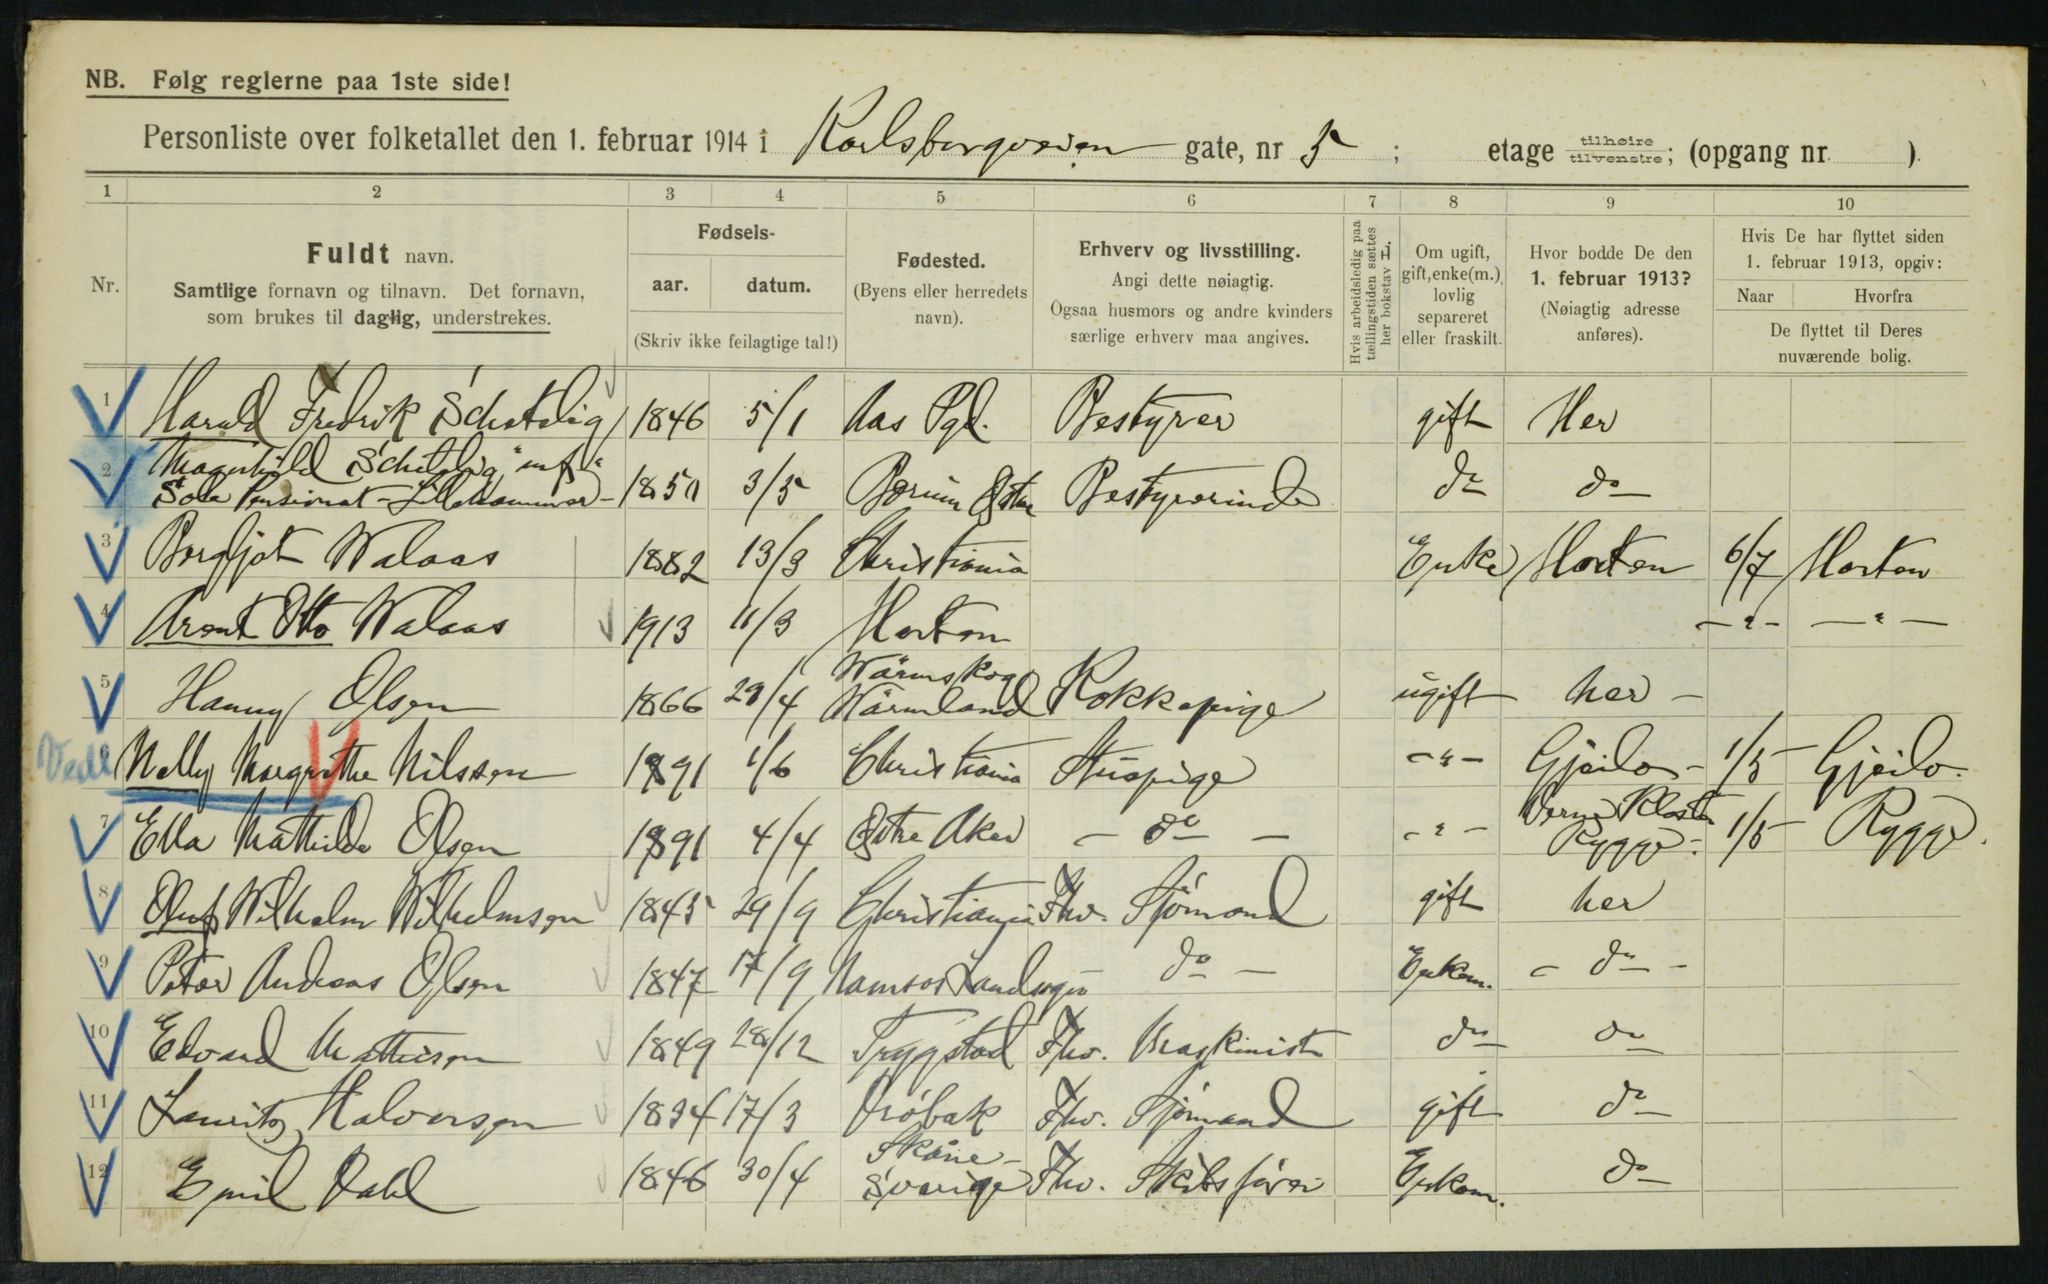 NB. Følg reglerne paa 1ste side!
Personliste over folketallet den 1. februar 1914 i Karlsborgveien gate, nr 5 ; etage tilhøire tilvenstre; (opgang nr ).
1 2 3 4 5 6 7 8 9 10
Nr.
Fuldt navn.
Samtlige fornavn og tilnavn. Det fornavn,
som brukes til daglig, understrekes.
Fødsels-
aar. datum.
(Skriv ikke feilagtige tal!)
Fødested.
(Byens eller herredets
navn).
Erhverv og livsstilling.
Angi dette nøiagtig.
Ogsaa husmors og andre kvinders
særlige erhverv maa angives.
Hvis arbeidsledig paa
tællingstiden sættes
her bokstav L.
Om ugift,
gift, enke(m.),
lovlig
separeret
eller fraskilt.
Hvor bodde De den
1. februar 1913?
(Nøiagtig adresse
anføres).
Hvis De har flyttet siden
1. februar 1913, opgiv:
Naar Hvorfra
De flyttet til Deres
nuværende bolig.
1 Harald Fredrik Schøtelig 1846 5/1 Aas Pgd. Bestyrer gift Her
2 Magnhild Schøtelig "mf"
Sole Pensionat - Lillehammer - 1850 3/5 Bærum Bestyrerinde do do
3 Borghjot Walaas 1882 13/3 Christiania Enke Horten 6/7 Horten
4 Arent Otto Walaas 1913 11/3 Horten -"- -"-
5 Hanny Olsen 1866 29/4 Wärmskog
Wärmland Kokkepige ugift her -
6 Vedl Nelly Margrethe Nilssen 1891 1/6 Christiania Stuepige -"- Gjeilo - 1/5 Gjeilo.
7 Ella Mathilde Olsen 1891 4/4 Østre Aker - do - -"- Verne Kloster
Rygge. 1/5 Rygge.
8 Oluf Wilhelm Wilhelmsen 1845 29/9 Christiania Fhv. Sjømand gift her
9 Peter Andreas Olsen 1847 17/9 Namsos Landsogn do - Enkem. - do -
10 Edvard Mathisen 1849 28/12 Trygstad Fhv. Maskinist do do
11 Lauritz Halvorsen 1834 17/3 Drøbak Fhv. Sjømand gift do
12 Emil Dahl 1846 30/4 Skåne -
Sverige Fhv. Skibsfører Enkem. do